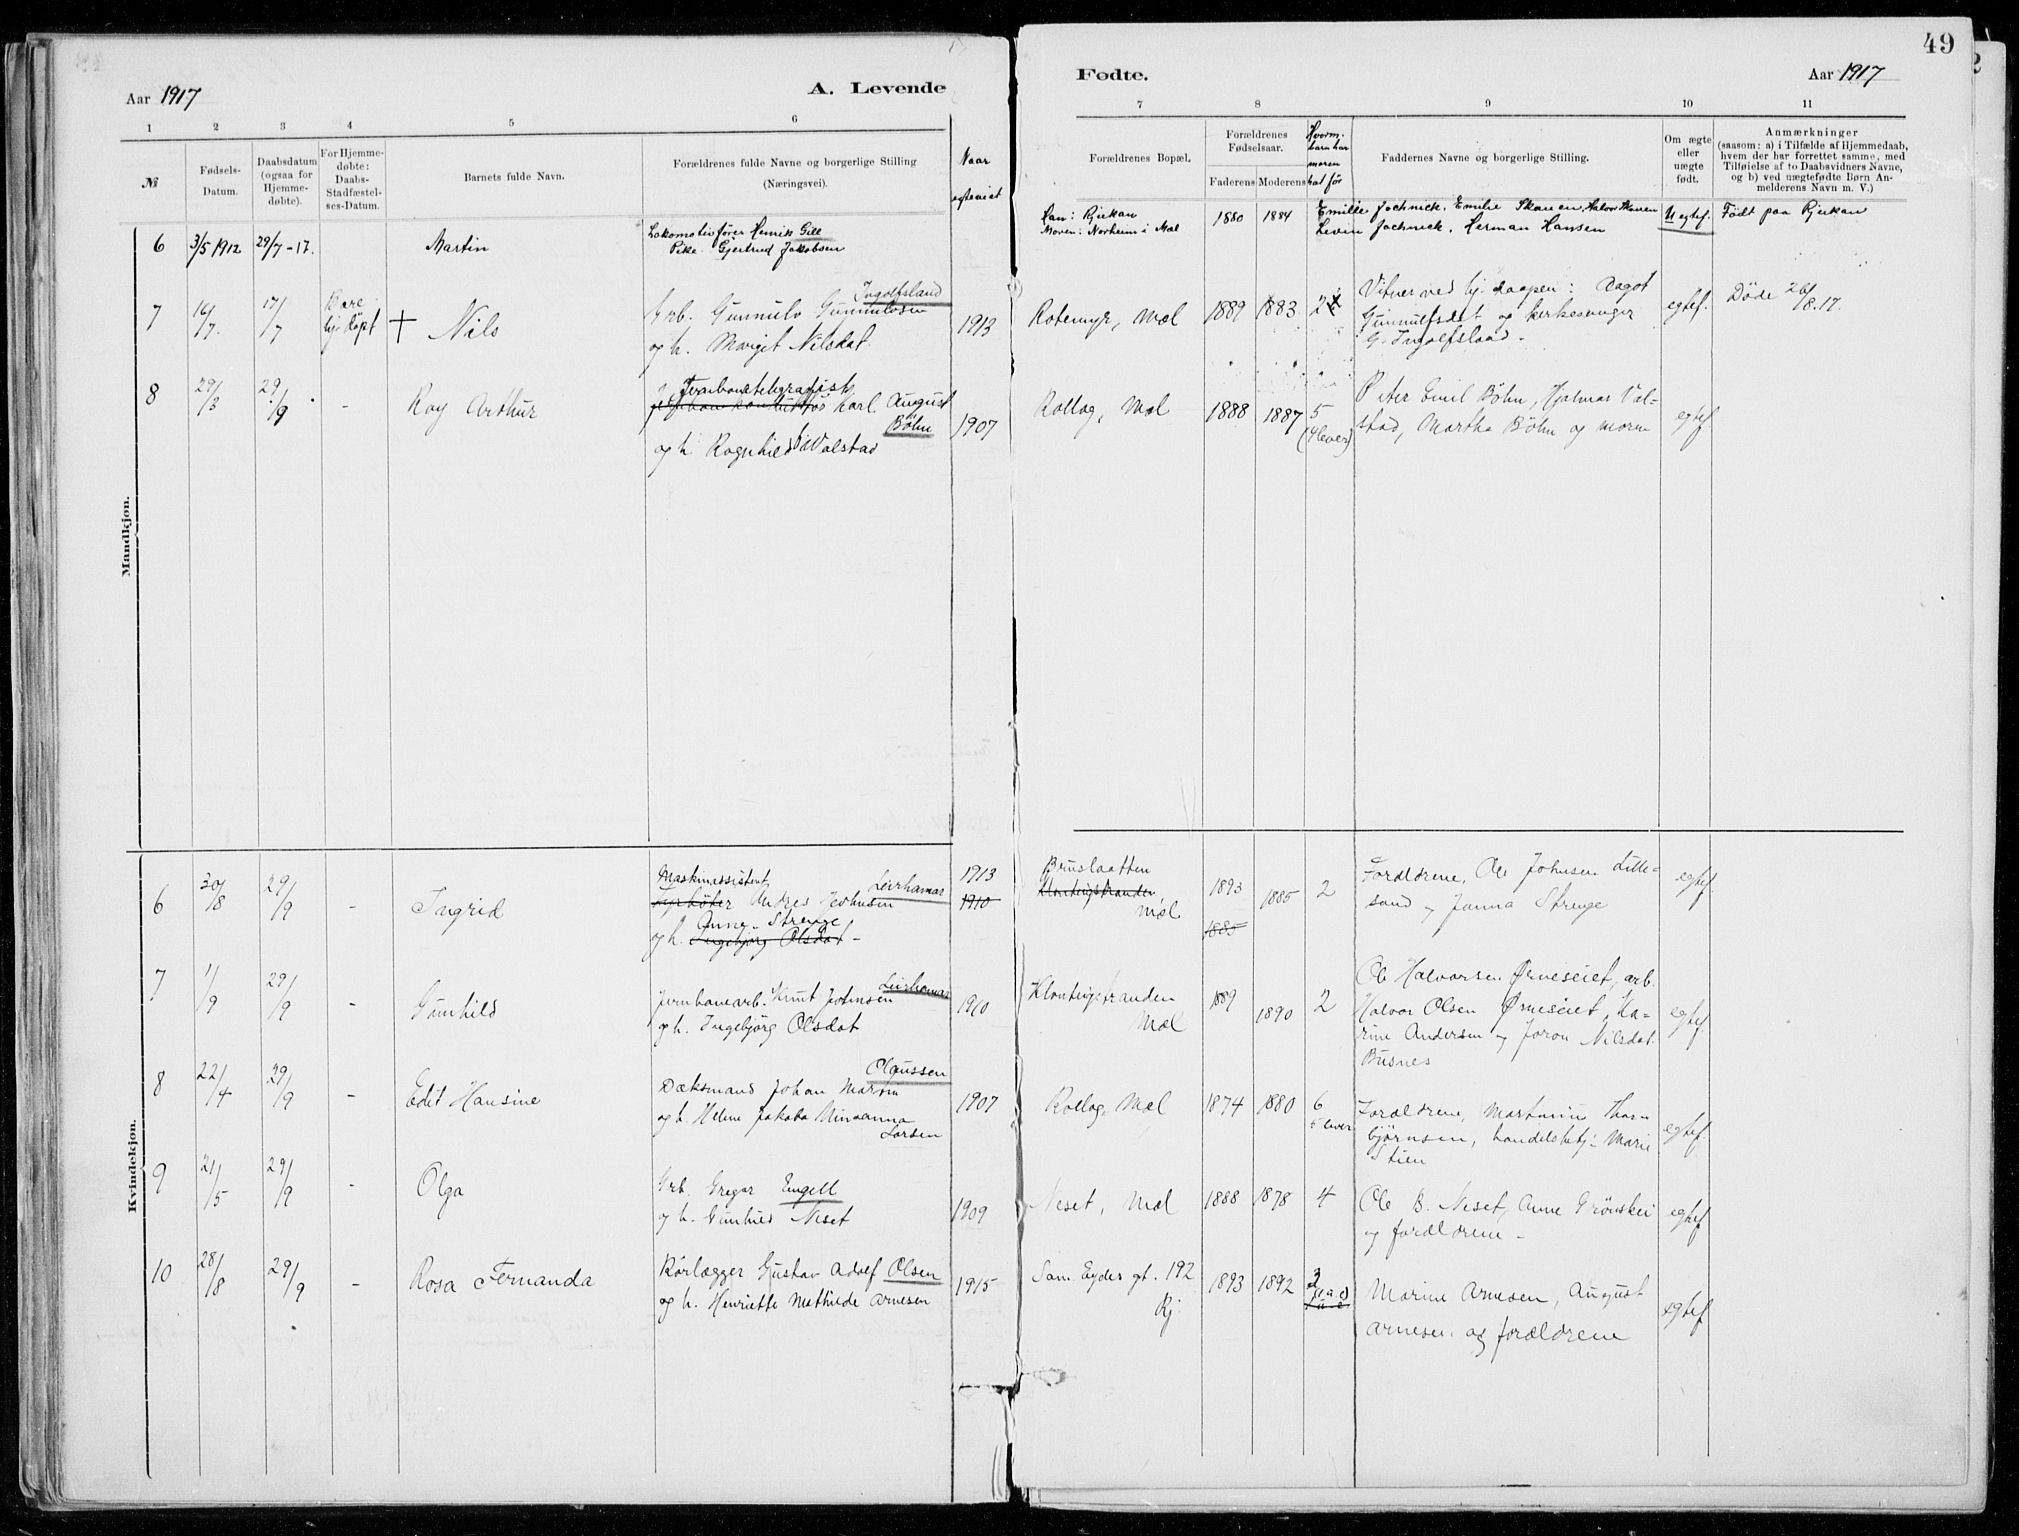 49
Aar 1917
A. Levende
Fødte.
Aar 1917
1 2 3 4 5 6 7 8 9 10 11
№
Fødsels-
Datum.
Daabsdatum
(ogsaa for
Hjemme-
døbte).
For Hjemme-
døbte:
Daabs-
Stadfæstel-
ses-Datum.
Barnets fulde Navn.
Forældrenes fulde Navne og borgerlige Stilling
(Næringsvei).
Naar
egteviet
Forældrenes Bopæl.
Forældrenes
Fødselsaar.
Faderens Moderens
Hvorm.
barn har
moren
hat før
Faddernes Navne og borgerlige Stilling.
Om ægte
eller
uægte
født.
Anmærkninger
(saasom: a) i Tilfælde af Hjemmedaab,
hvem der har forrettet samme, med
Tilføielse af to Daabsvidners Navne,
og b) ved uægtefødte Børn An-
melderens Navn m. V.)
Mandkjøn.
6 3/5 1912 29/7-17. Martin
Lokomotivfører Henrik Gill
Pike Gjertrud Jakobsen
Han: Rjukan
Moren: Norheim i Mæl
1880 1884
Emilie Jochnick. Emilie Skauen, Halvor Skauen
Levin Jochnick. Herman Hansen
Uegtef.
Født paa Rjukan
7 16/7. 17/7 Bare
hj. døpt
† Nils
Ingolfsland
Grb. Gunnulv Gunnulvsen
og h. Margit Nilsdat.
1913
Rotemyr, Mæl
1889 1883 2
Vitner ved hj. daapen: Aagot
Gunnulfsdat og kirkesanger
G. Ingolfsland.
egtef.
Døde 26/8.17.
8 29/3 29/9 - Roy Arthur
Jernbanetelegrafist
Karl August
Böhn
og h. Ragnhild Valstad
1907
Rollag, Mæl
1888 1887 5
(4 lever)
Peter Emil Böhn, Hjalmar Val-
stad, Martha Böhn og moren
egtef.
Kvindekjøn.
6 30/8 29/9 - Ingrid
Maskinassistent
Leirhamar
fyrbøter Andres Johnsen
Anne Strenge
og h. Ingebjörg Olsdat -
1913
1910
Bruslaatten
Klonteigstranden,
Mæl
1893
1885
1885 2
Forældrene, Ole Johnsen Lille-
sand og Janna Strenge
egtef
7 1/9 29/9 - Gunhild
Leirhamar
Jernbanearb. Knut Johnsen
og h. Ingebjörg Olsdat
1910
Klonteigstranden
Mæl
1889 1890 2
Ole Halvorsen Ørneseiet, arb.
Halvor Olsen Ørneseiet, Ka-
rine Andersen og Joron Nilsdat.
Busnes
egtef.
8 22/4 29/9 - Edit Hansine
Olaussen
Dæksmand Johan Martin
og h. Helene Jakoba Minaanna
Larsen
1907
Rollag, Mæl
1874 1880 6
5 lever
Forældrene, Martinin Thor-
bjørnsen, handelsbetj. Marie
Stien
egtef.
9 21/5 29/9 - Olga
Grb. Gregar Engell
og h. Gunhild Neset
1909
Neset, Mæl
1888 1878 4
Ole B. Neset, Anne Grønskei
og forældrene -
egtef
10 28/8 29/9 - Rosa Fernanda
Rörlægger Gustav Adolf Olsen
og h. Henriette Mathilde Arnesen
1915
Sam. Eydes gt. 192
Rj.
1893 1892 3
Marine Arnesen, August
Arnesen og forældrene
egtef